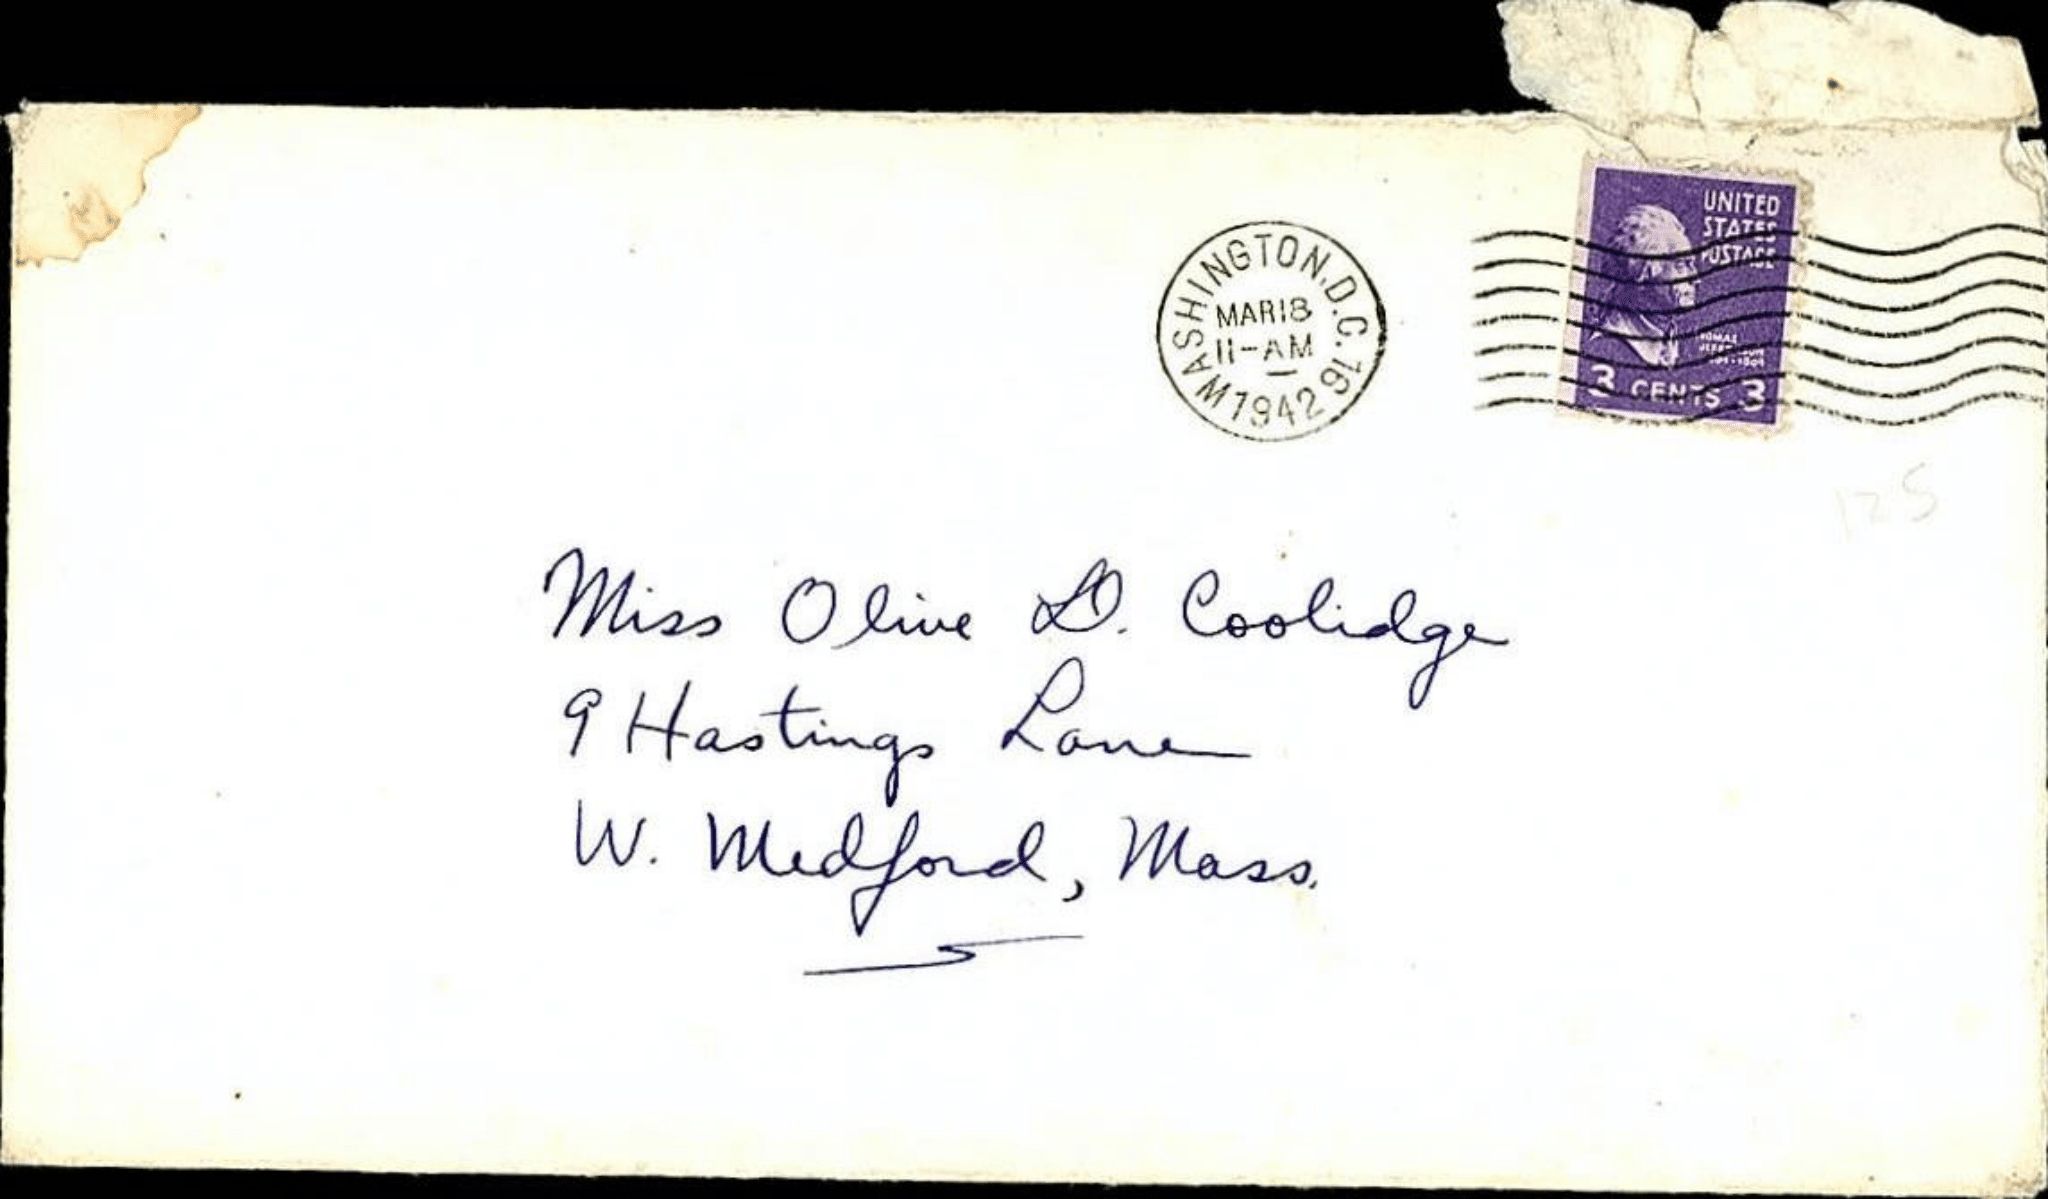 WASHINGTON, D.C. 16
MAR 18
11-AM
1942
UNITED
STATES
POSTAGE
3 CENTS 3
125
Miss Olive D. Coolidge
9 Hastings Lane
W. Medford, Mass.